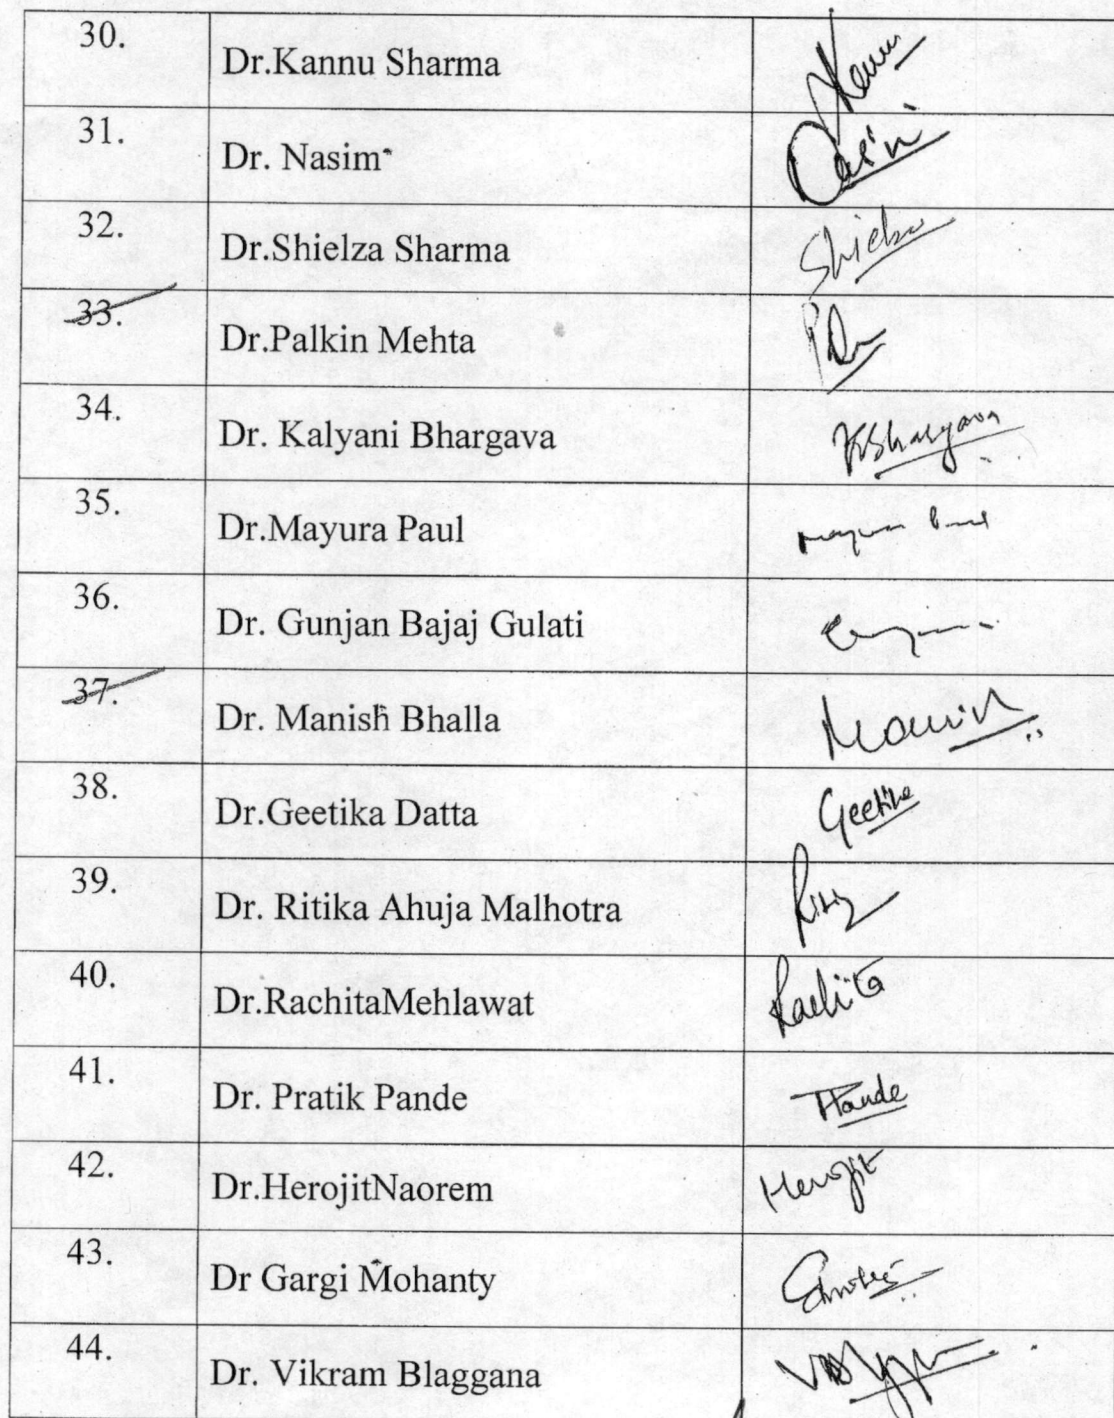 30. Dr.Kannu Sharma
31. Dr. Nasim
32. Dr.Shielza Sharma
33. Dr.Palkin Mehta
34. Dr. Kalyani Bhargava KBhargava
35. Dr.Mayura Paul
36. Dr. Gunjan Bajaj Gulati
37. Dr. Manish Bhalla Manish
38. Dr.Geetika Datta Geetika
39. Dr. Ritika Ahuja Malhotra
40. Dr.RachitaMehlawat Rachita
41. Dr. Pratik Pande
42. Dr.HerojitNaorem Herojit
43. Dr Gargi Mohanty
44. Dr. Vikram Blaggana